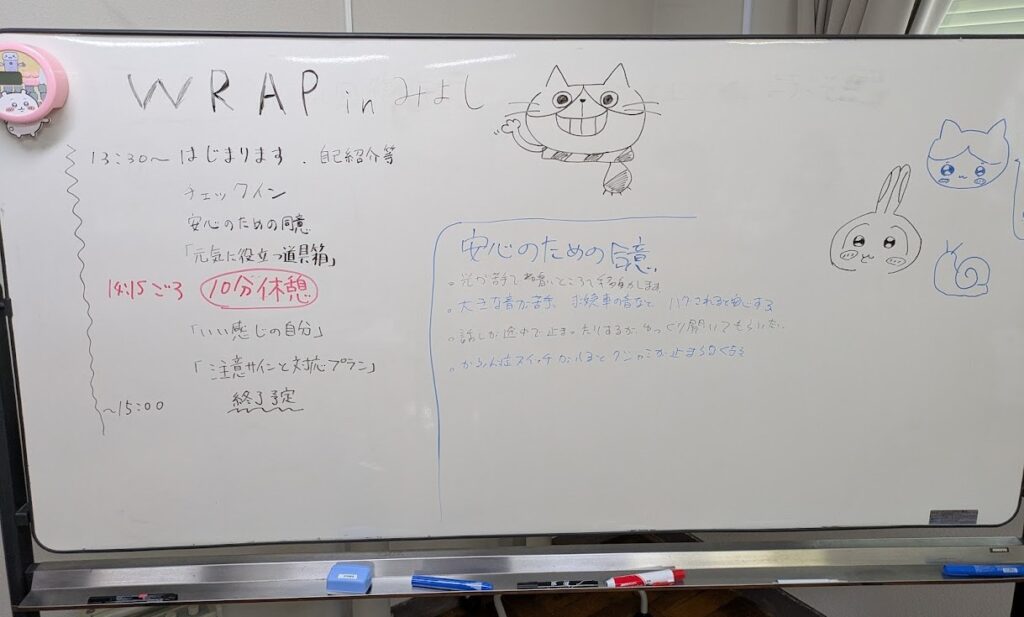 WRAP in みよし
13:30〜 はじまります．自己紹介等
チェックイン
安心のための同意
「元気に役立つ道具箱」
14:15ごろ 10分休憩
「いい感じの自分」
「注意サインと対応プラン」
〜15:00 終了予定
安心のための同意
。光が苦手で暗いところで
。大きな音が苦手 救急車の音など ハグされると安心する
。話しが途中で止まったりするが、ゆっくり聞いてもらいたい
。かふん症スイッチが入ると クシャミが止まらなくなる